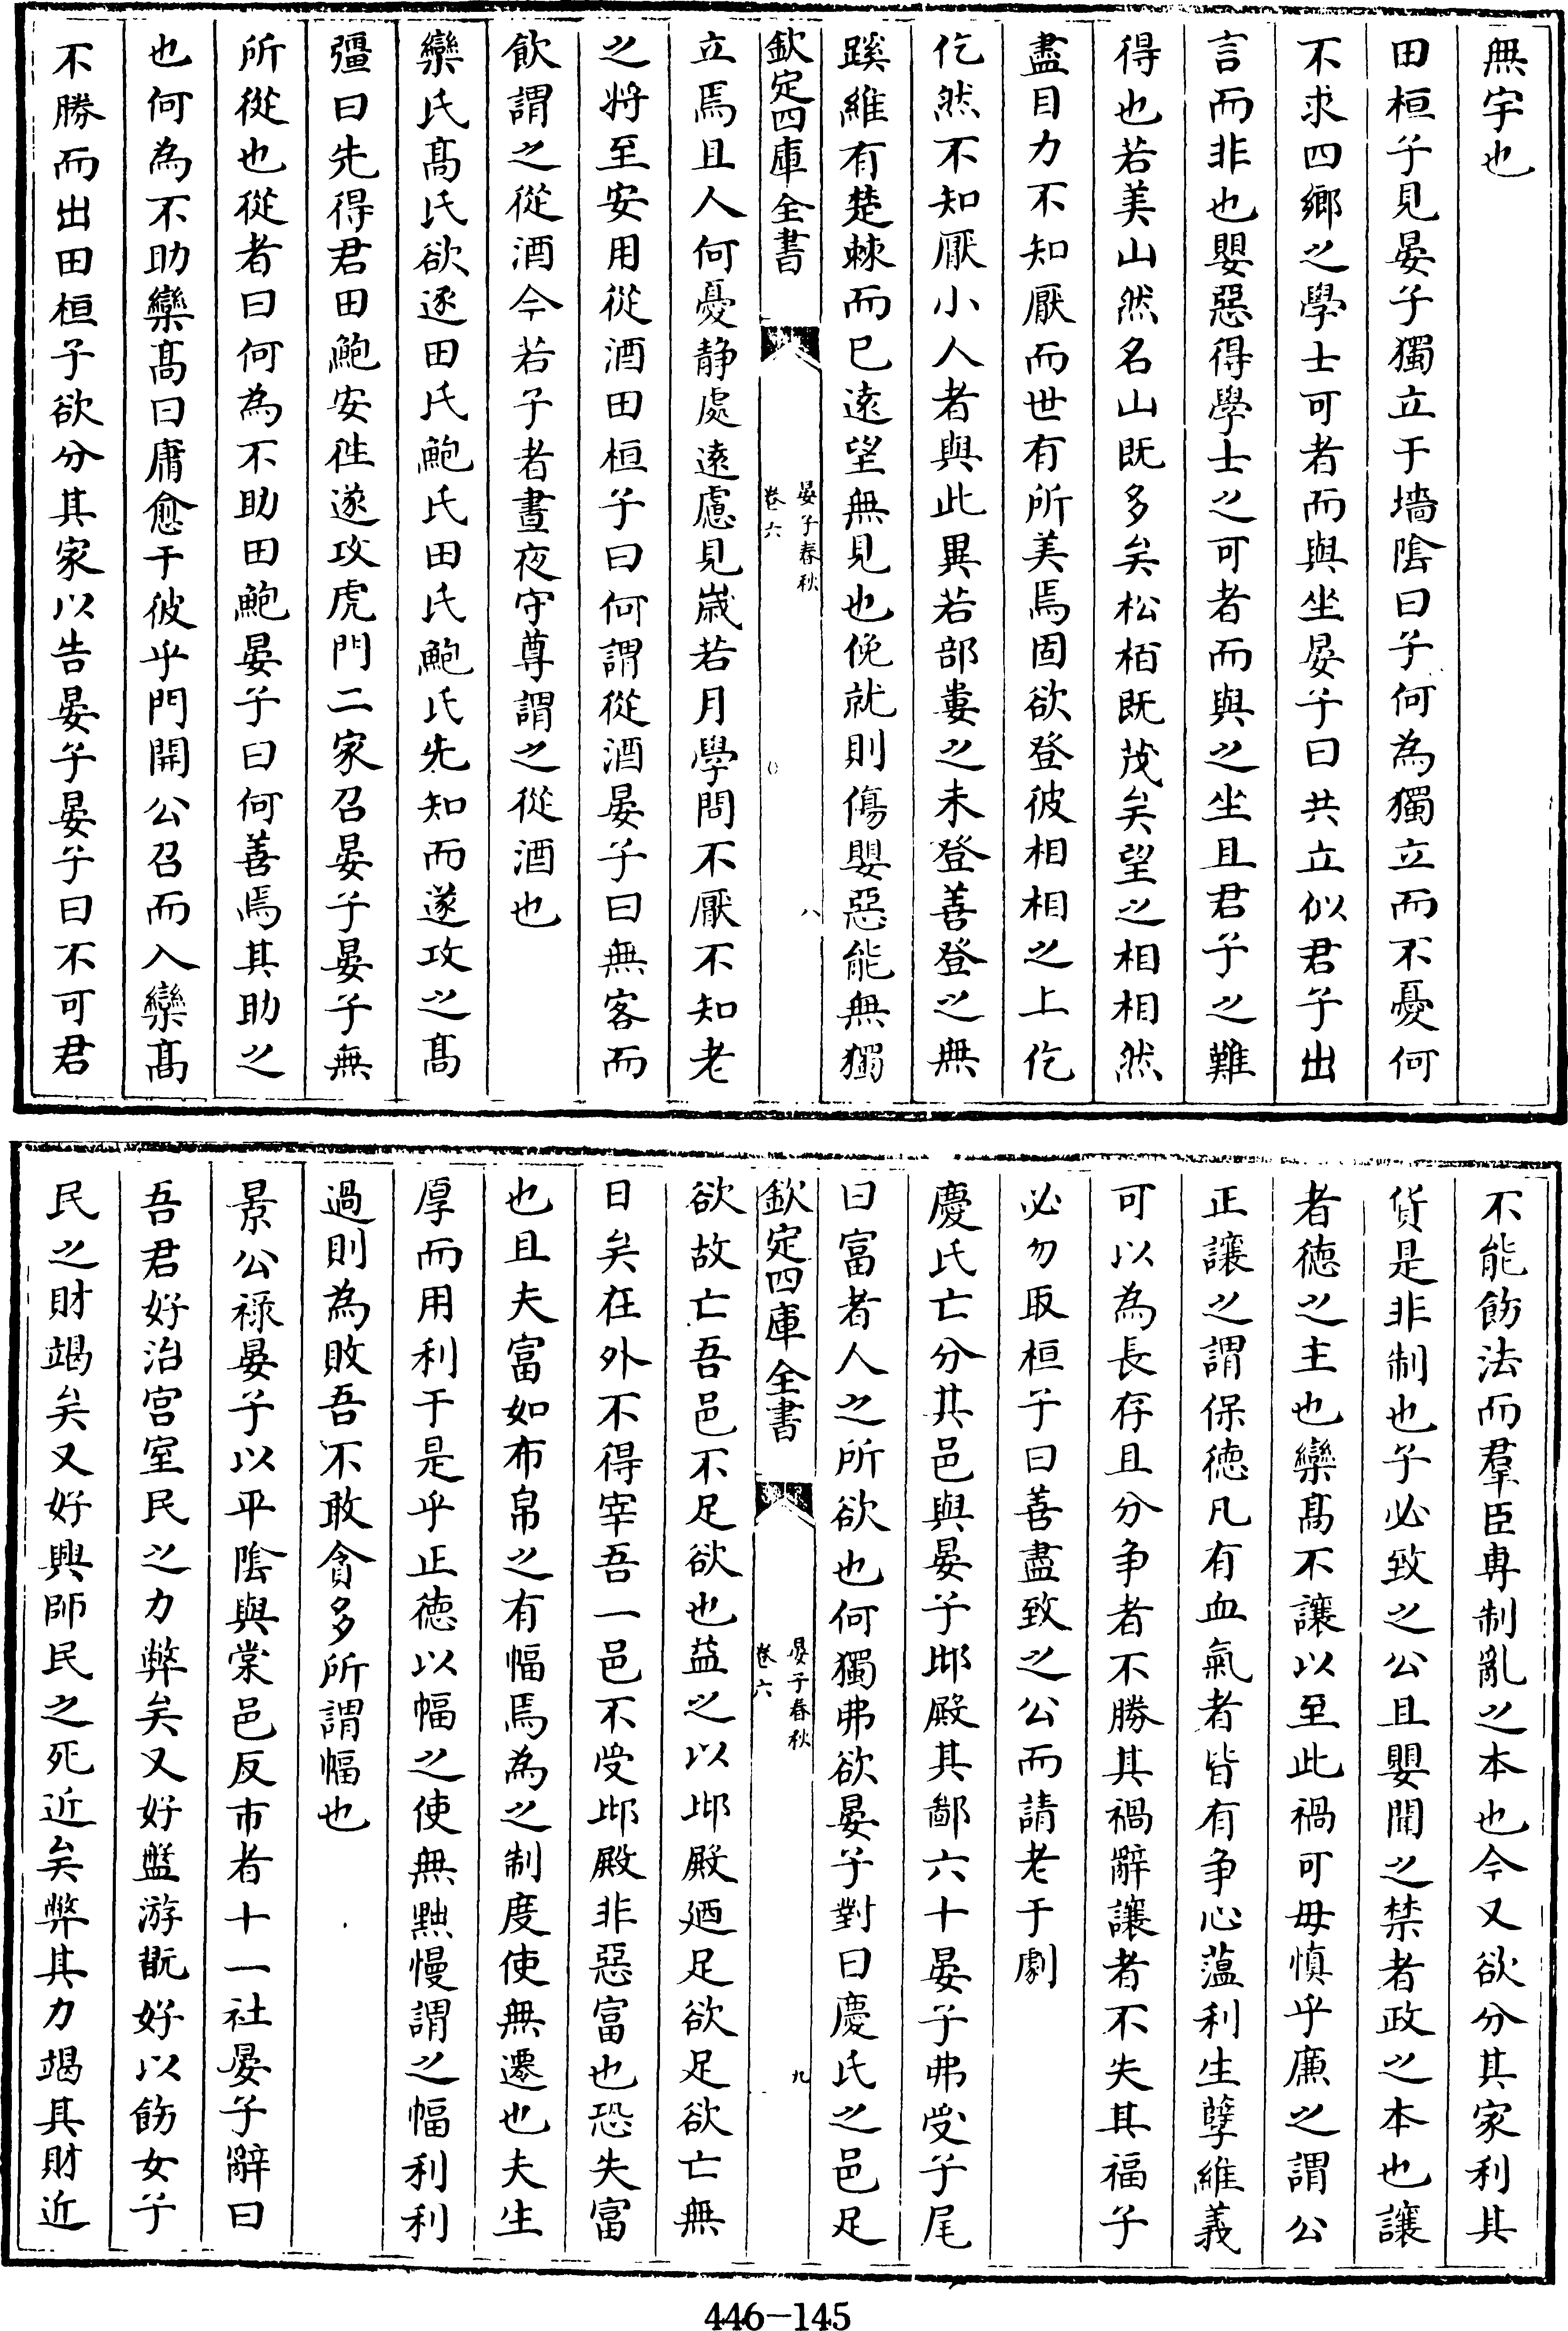 無宇也
田桓子見晏子獨立于墻隂曰子何為獨立而不憂何
不求四鄉之學士可者而與坐晏子曰共立似君子出
言而非也嬰惡得學士之可者而與之坐且君子之難
得也若美山然名山既多矣松栢既茂矣望之相相然
盡目力不知厭而世有所美焉固欲登彼相相之上仡
仡然不知厭小人者與此異若部婁之未登善登之無
蹊維有楚棘而已遠望無見也俛就則傷嬰惡能無獨
欽定四庫全書
晏子春秋
卷六
八
立焉且人何憂静處遠慮見嵗若月學問不厭不知老
之将至安用從酒田桓子曰何謂從酒晏子曰無客而
飲謂之從酒今若子者晝夜守尊謂之從酒也
欒氏髙氏欲逐田氏鮑氏田氏鮑氏先知而遂攻之髙
彊曰先得君田鮑安徃遂攻虎門二家召晏子晏子無
所從也從者曰何為不助田鮑晏子曰何善焉其助之
也何為不助欒髙曰庸愈于彼乎門開公召而入欒髙
不勝而出田桓子欲分其家以告晏子晏子曰不可君
不能飭法而羣臣専制亂之本也今又欲分其家利其
貨是非制也子必致之公且嬰聞之禁者政之本也讓
者徳之主也欒髙不讓以至此禍可毋慎乎廉之謂公
正讓之謂保徳凡有血氣者皆有争心薀利生孽維義
可以為長存且分争者不勝其禍辭讓者不失其福子
必勿取桓子曰善盡致之公而請老于劇
慶氏亡分其邑與晏子邶殿其鄙六十晏子弗受子尾
曰富者人之所欲也何獨弗欲晏子對曰慶氏之邑足
欽定四庫全書
晏子春秋
卷六
九
欲故亡吾邑不足欲也益之以邶殿廼足欲足欲亡無
日矣在外不得宰吾一邑不受邶殿非惡富也恐失富
也且夫富如布帛之有幅焉為之制度使無遷也夫生
厚而用利于是乎正徳以幅之使無黜慢謂之幅利利
過則為敗吾不敢貪多所謂幅也
景公禄晏子以平隂與棠邑反市者十一社晏子辭曰
吾君好治宫室民之力弊矣又好盤游翫好以飭女子
民之財竭矣又好興師民之死近矣弊其力竭其財近
446-145